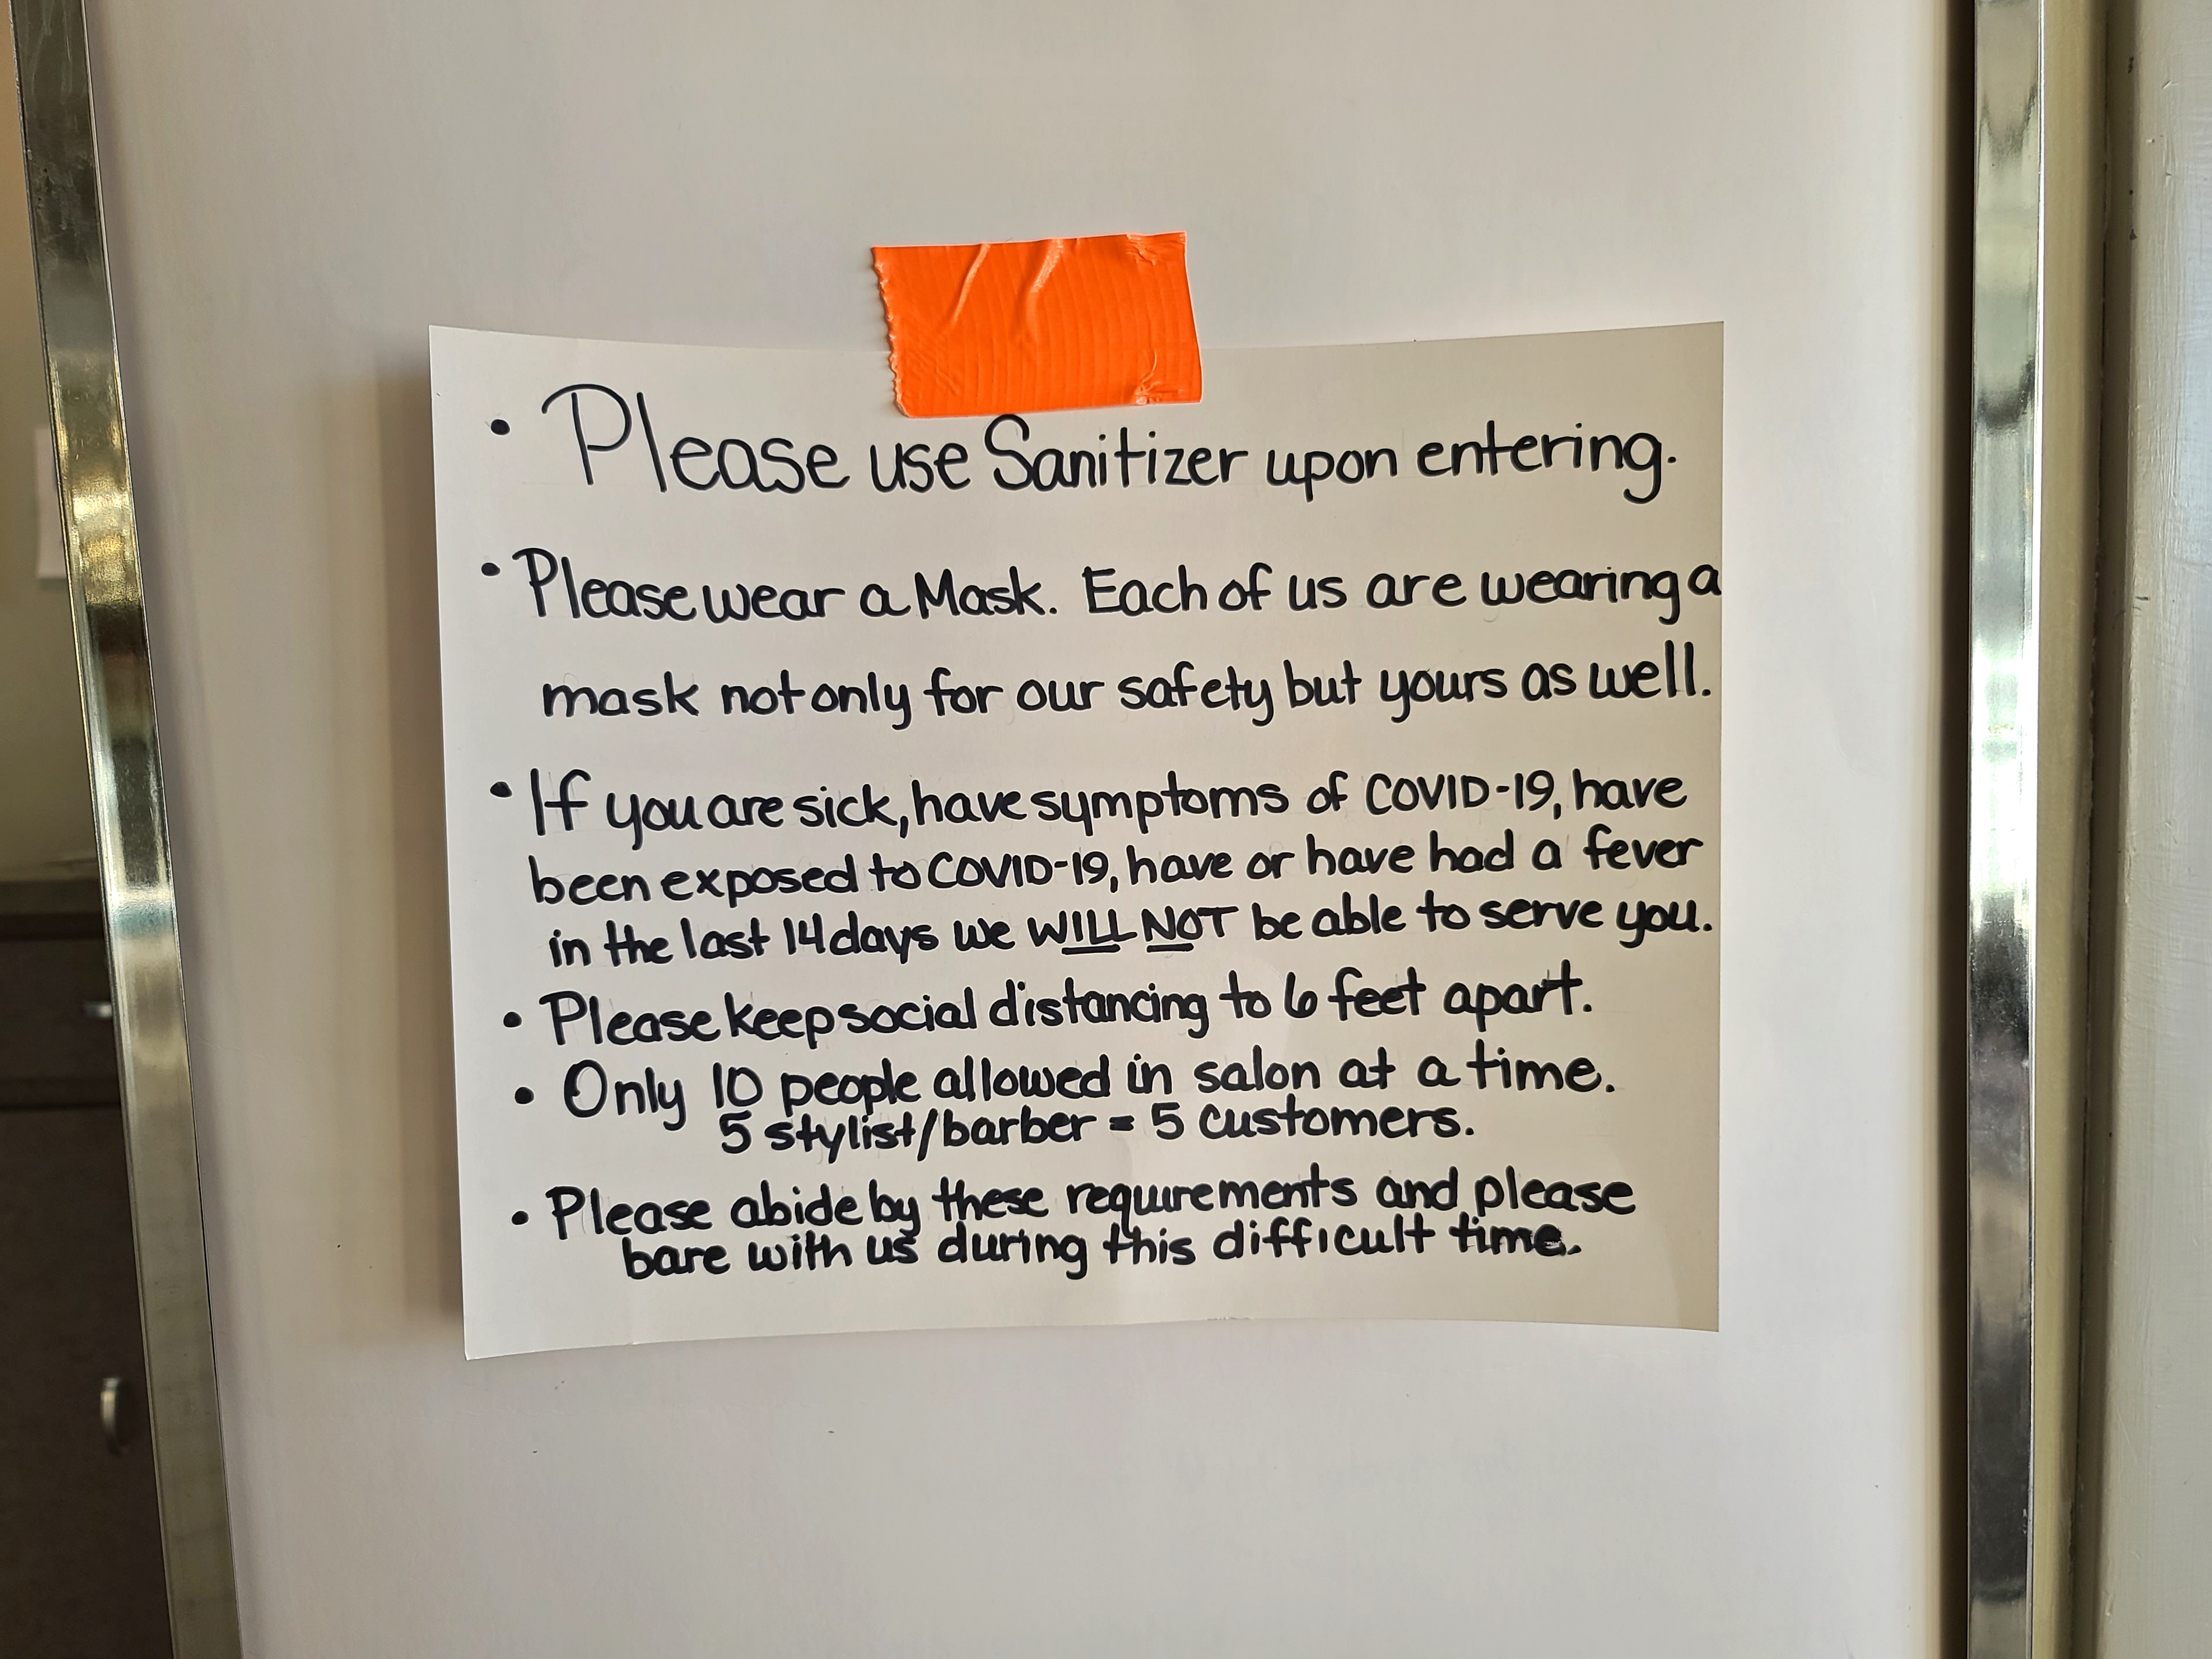 • Please use Sanitizer upon entering.
• Please wear a Mask. Each of us are wearing a
mask not only for our safety but yours as well.
• If you are sick, have symptoms of COVID-19, have
been exposed to COVID-19, have or have had a fever
in the last 14 days we WILL NOT be able to serve you.
• Please keep social distancing to 6 feet apart.
• Only 10 people allowed in salon at a time.
5 stylist/barber = 5 customers.
• Please abide by these requirements and please
bare with us during this difficult time.